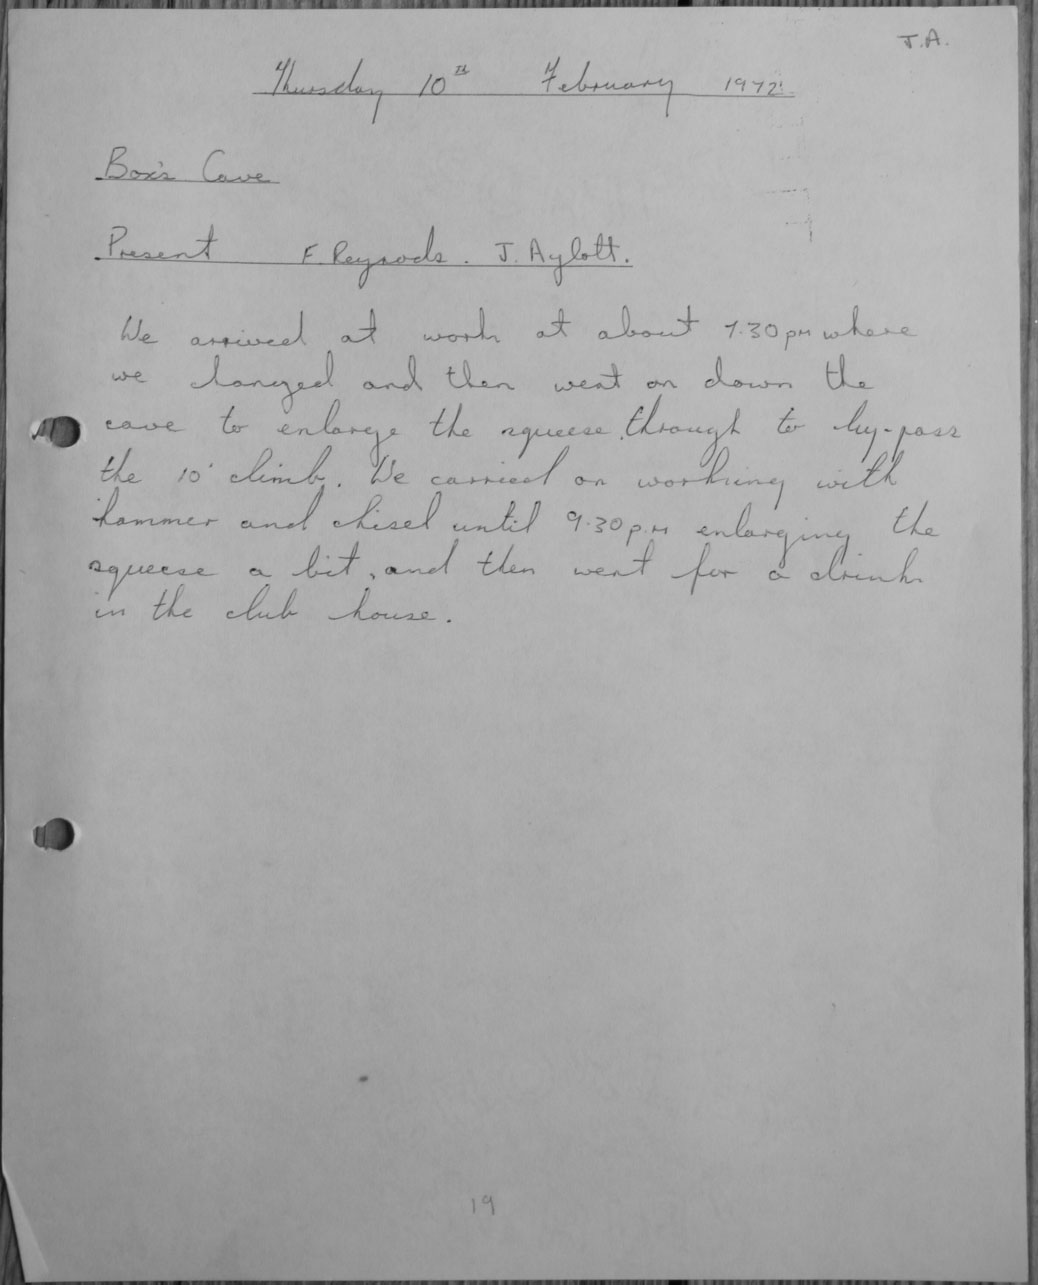 J.A.
Thursday 10TH February 1972.
Box's Cave
Present F. Reynods. J. Aylott.
We arrived at work at about 7.30pm where
we changed and then went on down the
cave to enlarge the squeese through to by-pass
the 10' climb. We carried on working with
hammer and chisel until 9.30p.m enlarging the
squeese a bit, and then went for a drink
in the club house.
19